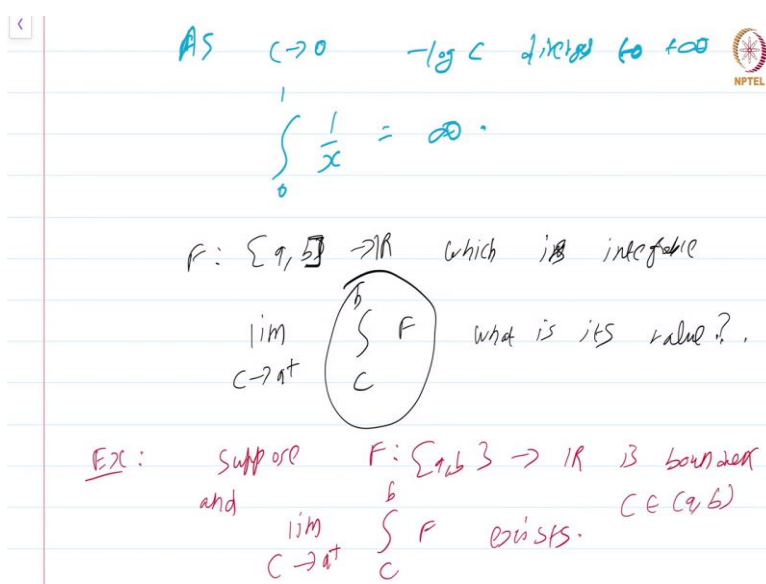 As c→0 -log c diverges to +∞
NPTEL
∫₀¹ 1/x = ∞.
F: [a, b] → ℝ which is integrable
lim c→a⁺ ∫_c^b F what is its value?.
Ex: Suppose F: [a,b] → ℝ is bounded
and lim c→a⁺ ∫_c^b F exists. c ∈ (a,b)